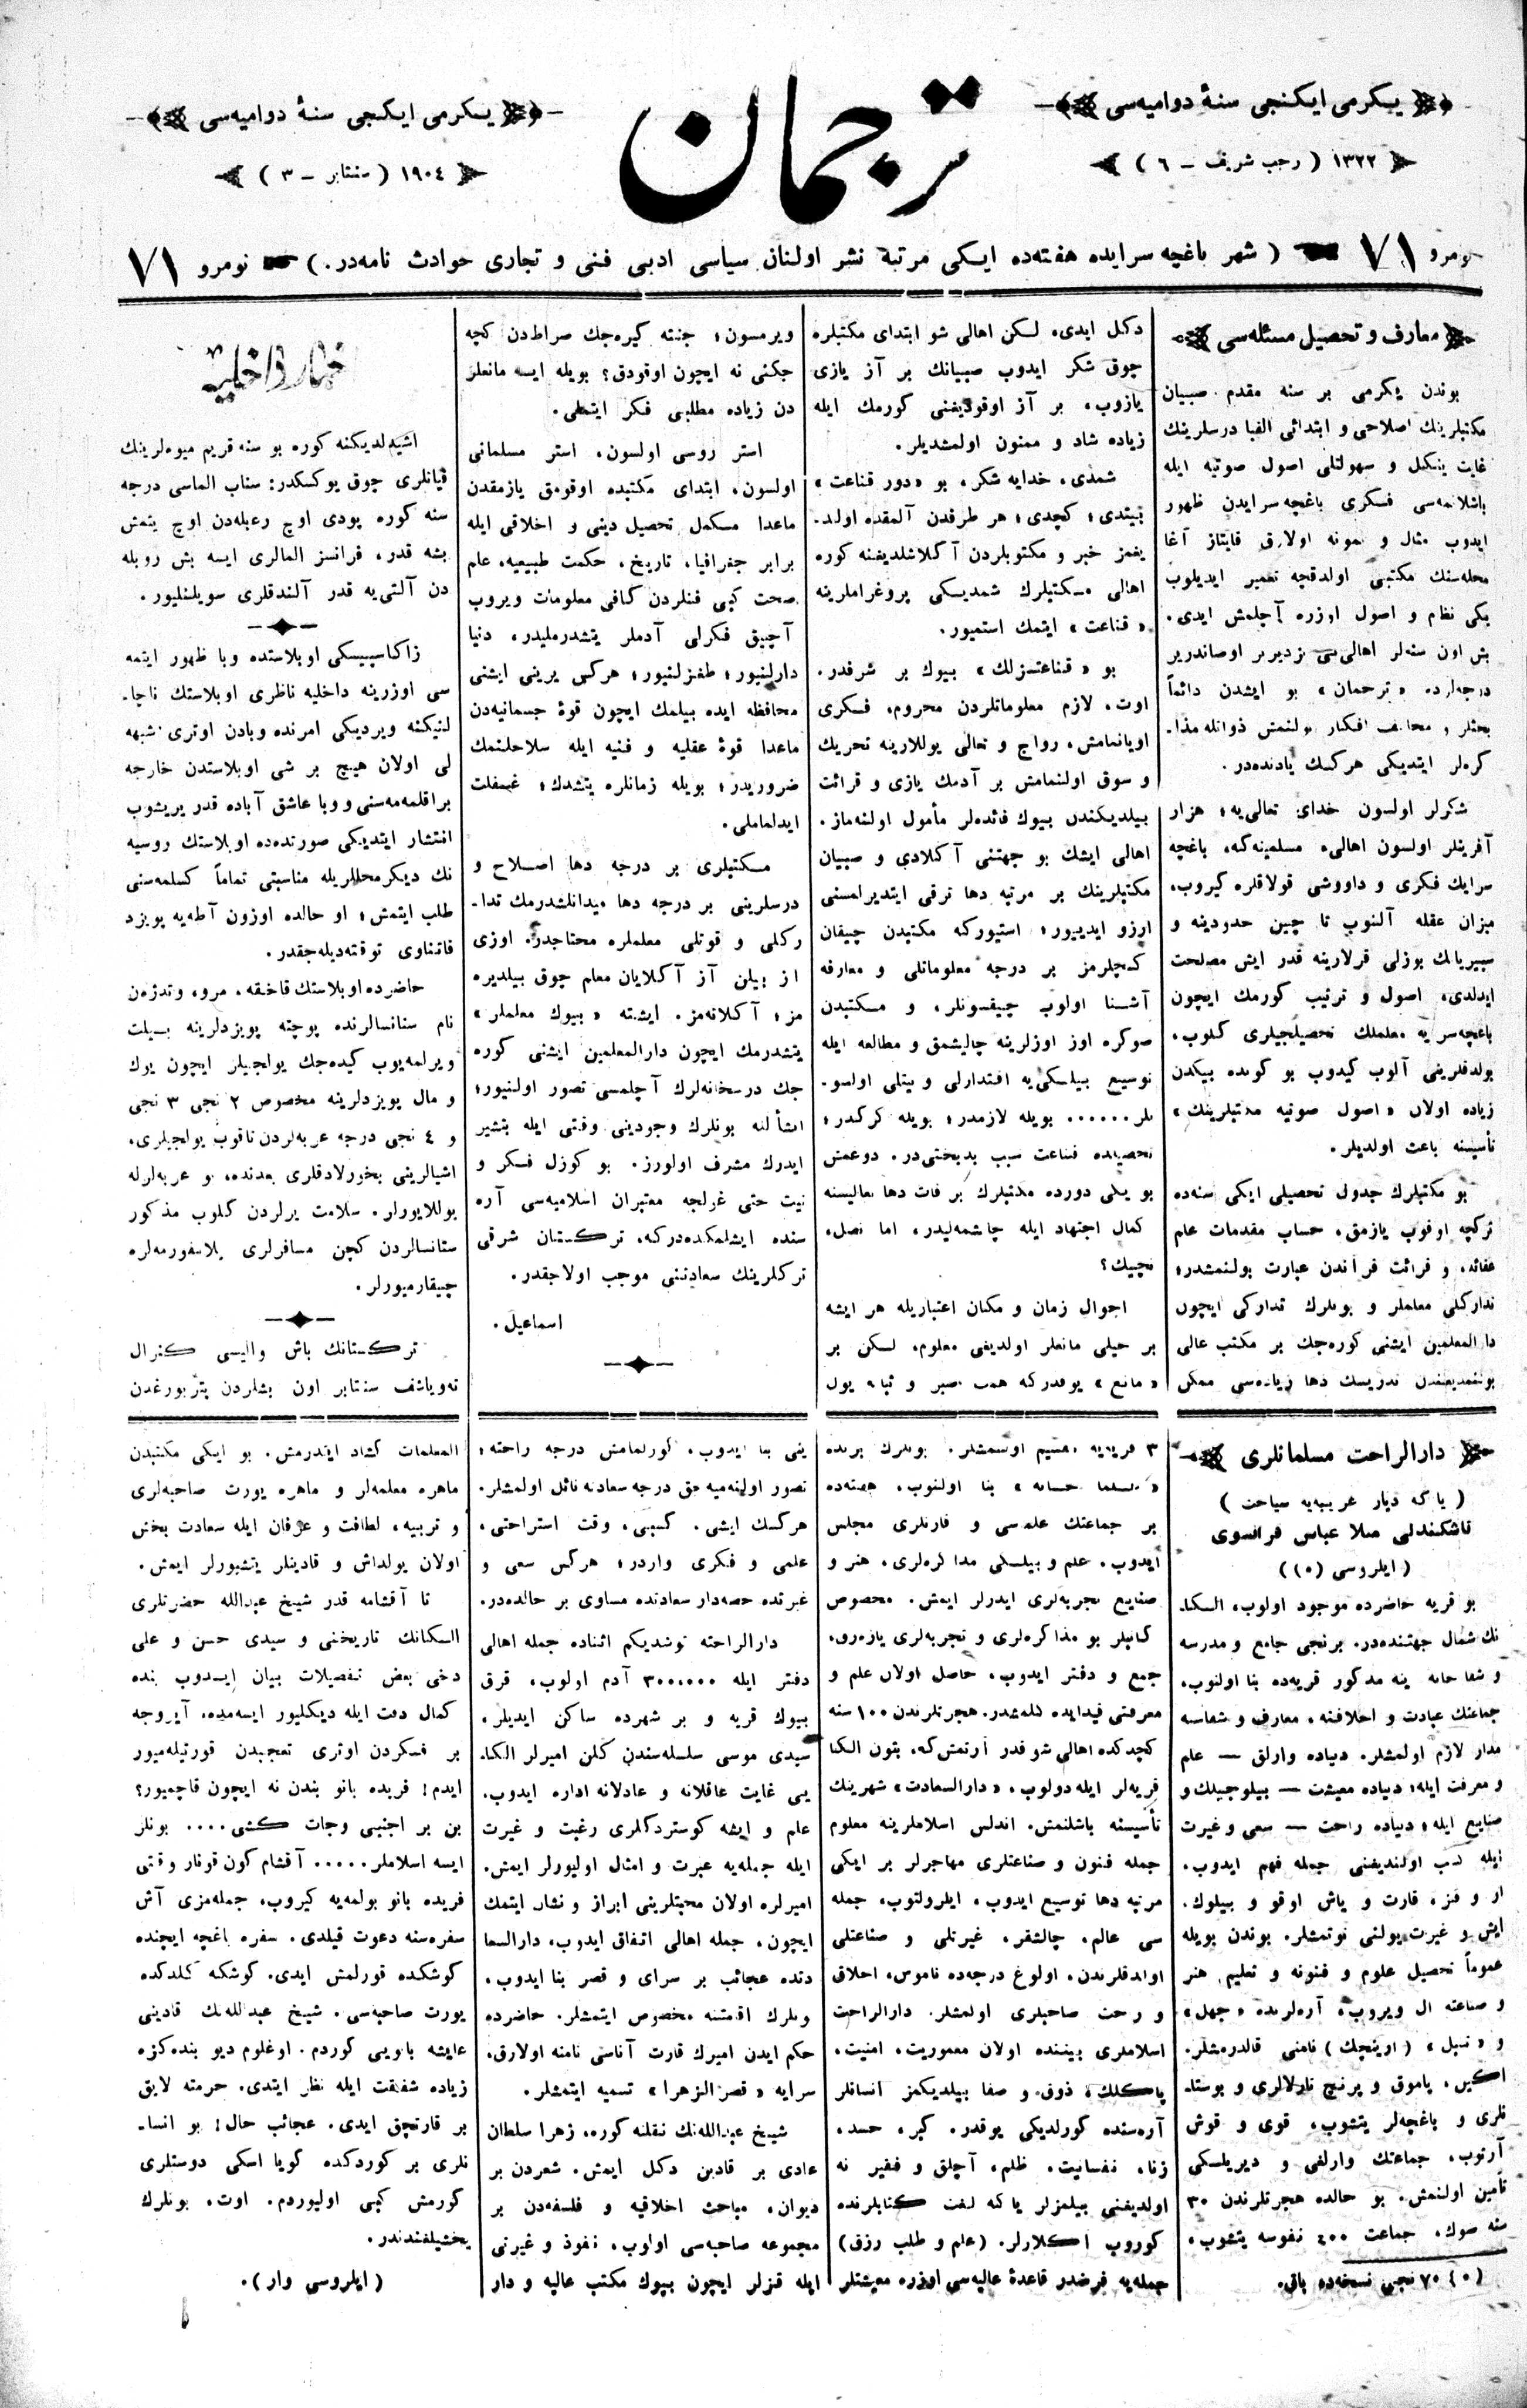 یکرمی ایکنجی سنهٔ دوامیه‌سی
۱۳۲۲ ( رجب شریف – ٦ )
ترجمان
یکرمی ایکنجی سنهٔ دوامیه‌سی
۱۹۰٤ ( سنتابر – ۳ )
نومرو ۷۱ ( شهر باغچه سرایده هفته‌ده ایکی مرتبه نشر اولنان سیاسی ادبی فنی و تجاری حوادث نامه‌در. ) نومرو ۷۱
معارف و تحصیل مسئله‌سی
بوندن یکرمی بر سنه مقدم صبیان
مکتبلرینك اصلاحی و ابتدائی الفبا درسلرینك
غایت ینکیل و سهولتلی اصول صوتیه ایله
باشلانمه‌سی فکری باغچه سرایدن ظهور
ایدوب مثال و نمونه اولارق قایتاز آغا
محله‌سنك مکتبی اولدقچه تعمیر ایدیلوب
یکی نظام و اصول اوزره آچلمش ایدی.
بش اون سنه‌لر اهالی‌یی بزدیریر اوصاندریر
درجه‌لرده «ترجمان» بو ایشدن دائماً
کره‌لر ایتدیکی هرکسك یادنده‌در.
شکرلر اولسون خدای تعالی‌یه؛ هزار
آفرینلر اولسون اهالیء مسلمینه‌که، باغچه
سرایك فکری و داووشی قولاقلره کیروب،
میزان عقله آلنوب تا چین حدودینه و
سیبریانك بوزلی قرلارینه قدر ایش مصلحت
ایدلدی، اصول و ترتیب کورمك ایچون
باغچه‌سرایه معلملك تحصیلجیلری کلوب،
یولدقلرینی آلوب کیدوب بو کونده بیكدن
زیاده اولان «اصول صوتیه مکتبلرینك»
تأسیسنه باعث اولدیلر.
بو مکتبلرك جدول تحصیلی ایکی سنه‌ده
ترکچه اوقوب یازمق، حساب مقدمات علم
عقائد، و قرائت قرآندن عبارت بولنمشدر؛
تدارکلی معلملر و بونلرك تدارکی ایچون
دارالمعلمین ایشنی کوره‌جك بر مکتب عالی
بولنمدیغندن تدریسك دها زیاده‌سی ممکن
دکل ایدی، لکن اهالی شو ابتدای مکتبلره
چوق شکر ایدوب صبیانك بر آز یازی
یازوب، بر آز اوقودیغنی کورمك ایله
زیاده شاد و ممنون اولمشدیلر.
شمدی، خدایه شکر، بو «دور قناعت»
بیتدی؛ کچدی؛ هر طرفدن آلمقده اولد۔
یغمز خبر و مکتوبلردن آکلاشلدیغنه کوره
اهالی مکتبلرك شمدیکی پروغراملرینه
«قناعت» ایتمك استمیور.
بو «قناعتسزلك» بیوك بر شرفدر.
اوت، لازم معلوماتلردن محروم، فکری
اویانمامش، رواج و تعالی یوللارینه تحریك
و سوق اولنمامش بر آدمك یازی و قرائت
بیلدیکندن بیوك فائده‌لر مأمول اولنه‌ماز.
اهالی ایشك بو جهتنی آکلادی و صبیان
مکتبلرینك بر مرتبه دها ترقی ایتدیرلمسنی
ارزو ایدییور؛ استیورکه مکتبدن چیقان
کنچلرمز بر درجه معلوماتلی و معارفه
آشنا اولوب چیقسونلر، و مکتبدن
صوکره اوز اوزلرینه چالیشمق و مطالعه ایله
توسیع بیلکی‌یه اقتدارلی و بیتلی اولسو۔
نلر...... بویله لازمدر؛ بویله کرکدر؛
تحصیلده قناعت سبب بدبختی‌در. دوغمش
بو یکی دورده مکتبلرك بر قات دها تعالیسنه
کمال اجتهاد ایله چالشمه‌لیدر، اما نصل،
نچیك؟
احوال زمان و مکان اعتباریله هر ایشه
بر حیلی مانعلر اولدیغی معلوم، لکن بر
«مانع» یوقدرکه همت صبر و ثبات یول
ویرمسون؛ جنته کیره‌جك صراط‌دن کچه
جکنی نه ایچون اوقودق؟ بویله ایسه مانعلر
دن زیاده مطلبی فکر ایتملی.
استر روسی اولسون، استر مسلمانی
اولسون، ابتدای مکتبده اوقومق یازمقدن
ماعدا مکمل تحصیل دینی و اخلاقی ایله
برابر جغرافیا، تاریخ، حکمت طبیعیه، علم
صحت کبی فنلردن کافی معلومات ویروب
آچیق فکرلی آدملر یتشدرملیدر، دنیا
دارلنیور؛ طغزلنیور؛ هرکس یرینی ایشنی
محافظه ایده بیلمك ایچون قوهٔ جسمانیه‌دن
ماعدا قوهٔ عقلیه و فنیه ایله سلاحلنمك
ضروریدر؛ بویله زمانلره یتشدك؛ غفلت
ایدلماملی.
مکتبلری بر درجه دها اصلاح و
درسلرینی بر درجه دها میدانلشدرمك تدا۔
رکلی و قوتلی معلملره محتاجدر. اوزی
از بیلن آز آکلایان معلم چوق بیلدیره
مز؛ آکلاته‌مز. ایشته «بیوك معلملر»
یتشدرمك ایچون دارالمعلمین ایشنی کوره
جك درسخانه‌لرك آچلمسی تصور اولنیور؛
انشألله بونلرك وجودینی وقتی ایله بتشیر
ایدرك مشرف اولورز. بو کوزل فکر و
نیت حتی غولجه معتبران اسلامیه‌سی آره
سنده ایشلمکده‌درکه، ترکستان شرقی
ترکلرینك سعادتنی موجب اولاجقدر.
اسماعیل.
اخبار داخلیه
اشیدلدیکنه کوره بو سنه قریم میوه‌لرینك
قیاتلری چوق یوکسکدر: سناب الماسی درجه
سنه کوره پودی اوچ رعبله‌دن اوچ یتمش
بشه قدر، فرانسز المالری ایسه بش روبله
دن آلتی‌یه قدر آلندقلری سویلنلیور.
زاکاسپیسکی اوبلاستده وبا ظهور ایتمه
سی اوزرینه داخلیه ناظری اوبلاستك ناچا۔
لنیکنه ویردیکی امرنده وبادن اوتری شبهه
لی اولان هیچ بر شی اوبلاستدن خارجه
براقلمه‌مه‌سنی و وبا عاشق آباده قدر یریشوب
انتشار ایتدیکی صورتده‌ده اوبلاستك روسیه
نك دیکر محللریله مناسبتی تماماً کسلمه‌سنی
طلب ایتمش؛ او حالده اوزون آطه‌یه پویزد
قاتناوی توقته‌دیله‌جقدر.
حاضرده اوبلاستك قاخقه، مرو، وتدژن
نام ستانسالرنده پوچته پویزدلرینه بیلت
ویرلمه‌یوب کیده‌جك یولجیلر ایچون یوك
و مال پویزدلرینه مخصوص ۲ نجی ۳ نجی
و ٤ نجی درجه عربه‌لردن تاقوب یولجیلری،
اشیالرینی بخورلادقلری بعدنده، بو عربه‌لرله
یوللایورلر. سلامت یرلردن کلوب مذکور
ستانسالردن کچن مسافرلری پلاتفورمه‌لره
چیقارمیورلر.
ترکستانك باش والیسی کنرال
ته‌ویاشف سنتابر اون بشلردن پتربورغدن
دارالراحت مسلمانلری
( یا که دیار غریبه‌یه سیاحت )
تاشکندلی ملا عباس فرانسوی
( ایلروسی (٥) )
بو قریه حاضرده موجود اولوب، الکا۔
نك شمال جهتنده‌در. برنجی جامع و مدرسه
و شفا خانه ینه مذکور قریه‌ده بنا اولنوب،
جماعتك عبادت و اخلاقنه، معارف و شفاسنه
مدار لازم اولمشلر. دنیاده وارلق — علم
و معرفت ایله؛ دنیاده معیشت — بیلوجیلك و
صنایع ایله؛ دنیاده راحت — سعی و غیرت
ایله کسب اولندیغنی جمله فهم ایدوب،
ار و قز، قارت و یاش اوقو و بیلوك،
ایش و غیرت یولنی توتمشلر. بوندن بویله
عموماً تحصیل علوم و فنونه و تعلیم هنر
و صناعته ال ویروب، آره‌لرنده «جهل»
و «تنبل» ( اویتجك ) نامنی قالدرمشلر.
اکین، پاموق و پرنج تارلالری و بوستا۔
نلری و باغچه‌لر یتشوب، قوی و قوش
آرتوب، جماعتك وارلغی و دیریلکی
تأمین اولنمش. بو حالده هجرتلرندن ۳۰
سنه صوك، جماعت ٤۰۰ نفوسه یتشوب،
(٥) ۷۰ نجی نسخه‌ده باق.
۳ قریه‌یه تقسیم اولمشلر. بونلرك برنده
بنا اولنوب، هفته‌ده
بر جماعتك علمه‌سی و قارتلری مجلس
ایدوب، علم و بیلکی مذاکره‌لری، هنر و
صنایع تجربه‌لری ایدرلر ایمش. مخصوص
کاتبلر بو مذاکره‌لری و تجربه‌لری یازه‌رق،
جمع و دفتر ایدوب، حاصل اولان علم و
معرفتی قیدایده کلمشدر. هجرتلرندن ۱۰۰ سنه
کچدکده اهالی شو قدر آرتمش‌که، بتون الکا
قریه‌لر ایله دولوب، «دارالسعادت» شهرینك
تأسیسنه باشلنمش. اندلس اسلاملرینه معلوم
جمله فنون و صناعتلری مهاجرلر بر ایکی
مرتبه دها توسیع ایدوب، ایلرولتوب، جمله
سی عالم، چالشقر، غیرتلی و صناعتلی
اولدقلرندن، اولوغ درجه‌ده ناموس، اخلاق
و رحت صاحبلری اولمشلر. دارالراحت
اسلاملری بیننده اولان معموریت، امنیت،
پاکلك، ذوق و صفا بیلدیکمز انسانلر
آره‌سنده کورلدیکی یوقدر. کبر، حسد،
زنا، نفسانیت، ظلم، آچلق و فقیر نه
اولدیغنی بیلمزلر یا که لغت کتابلرنده
کوروب اکلارلر. (علم و طلب رزق)
جمله‌یه فرضدر قاعدهٔ عالیه‌سی اوزره معیشتلر
ینی بنا ایدوب، کورلمامش درجه راحته؛
تصور اولنه‌میه جق درجه سعادته نائل اولمشلر.
هرکسك ایشی، کسبی، وقت استراحتی،
علمی و فکری واردر؛ هرکس سعی و
غیرتده حصه‌دار سعادتده مساوی بر حالده‌در.
دارالراحته توشدیکم اثناده جمله اهالی
دفتر ایله ۳۰۰،۰۰۰ آدم اولوب، قرق
بیوك قریه و بر شهرده ساکن ایدیلر.
سیدی موسی سلسله‌سندن کلن امیرلر الکا۔
یی غایت عاقلانه و عادلانه اداره ایدوب،
علم و ایشه کوستردکلری رغبت و غیرت
ایله جمله‌یه عبرت و امثال اولیورلر ایمش.
امیرلره اولان محبتلرینی ابراز و نشان ایتمك
ایچون، جمله اهالی اتفاق ایدوب، دارالسعا
دتده عجائب بر سرای و قصر بنا ایدوب،
ونلرك اقامتنه مخصوص ایتمشلر. حاضرده
حکم ایدن امیرك قارت آناسی نامنه اولارق،
سرایه «قصر الزهرا» تسمیه ایتمشلر.
شیخ عبدالله‌نك نقلنه کوره، زهرا سلطان
عادی بر قادین دکل ایمش. شعردن بر
دیوان، مباحث اخلاقیه و فلسفه‌دن بر
مجموعه صاحبه‌سی اولوب، نفوذ و غیرتی
ایله قزلر ایچون بیوك مکتب عالیه و دار
المعلمات کشاد ایتدرمش. بو ایکی مکتبدن
ماهره معلمه‌لر و ماهره یورت صاحبه‌لری
و تربیه، لطافت و عرفان ایله سعادت بخش
اولان یولداش و قادینلر یتشیورلر ایمش.
تا آقشامه قدر شیخ عبدالله حضرتلری
الکانك تاریخنی و سیدی حسن و علی
دخی بعض تفصیلات بیان ایدوب بنده
کمال دقت ایله دیکلیور ایسه‌مده، آیروجه
بر فکردن اوتری تعجبدن قورتیله‌میور
ایدم! فریده بانو بندن نه ایچون قاچمیور؟
بن بر اجنبی وجات کشی.... بونلر
ایسه اسلاملر..... آقشام کون قونار وقتی
فریده بانو بولمه‌یه کیروب، جمله‌مزی آش
سفره‌سنه دعوت قیلدی. سفره باغچه ایچنده
کوشکده قورلمش ایدی. کوشکه کلدکده
یورت صاحبه‌سی، شیخ عبدالله‌نك قادینی
عایشه بانویی کوردم. اوغلوم دیو بنده‌کزه
زیاده شفقت ایله نظر ایتدی. حرمته لایق
بر قارتچق ایدی. عجائب حال! بو انسا۔
نلری بر کوردکده کویا اسکی دوستلری
کورمش کبی اولیوردم. اوت، بونلرك
یخشیلغندندر.
( ایلروسی وار ).